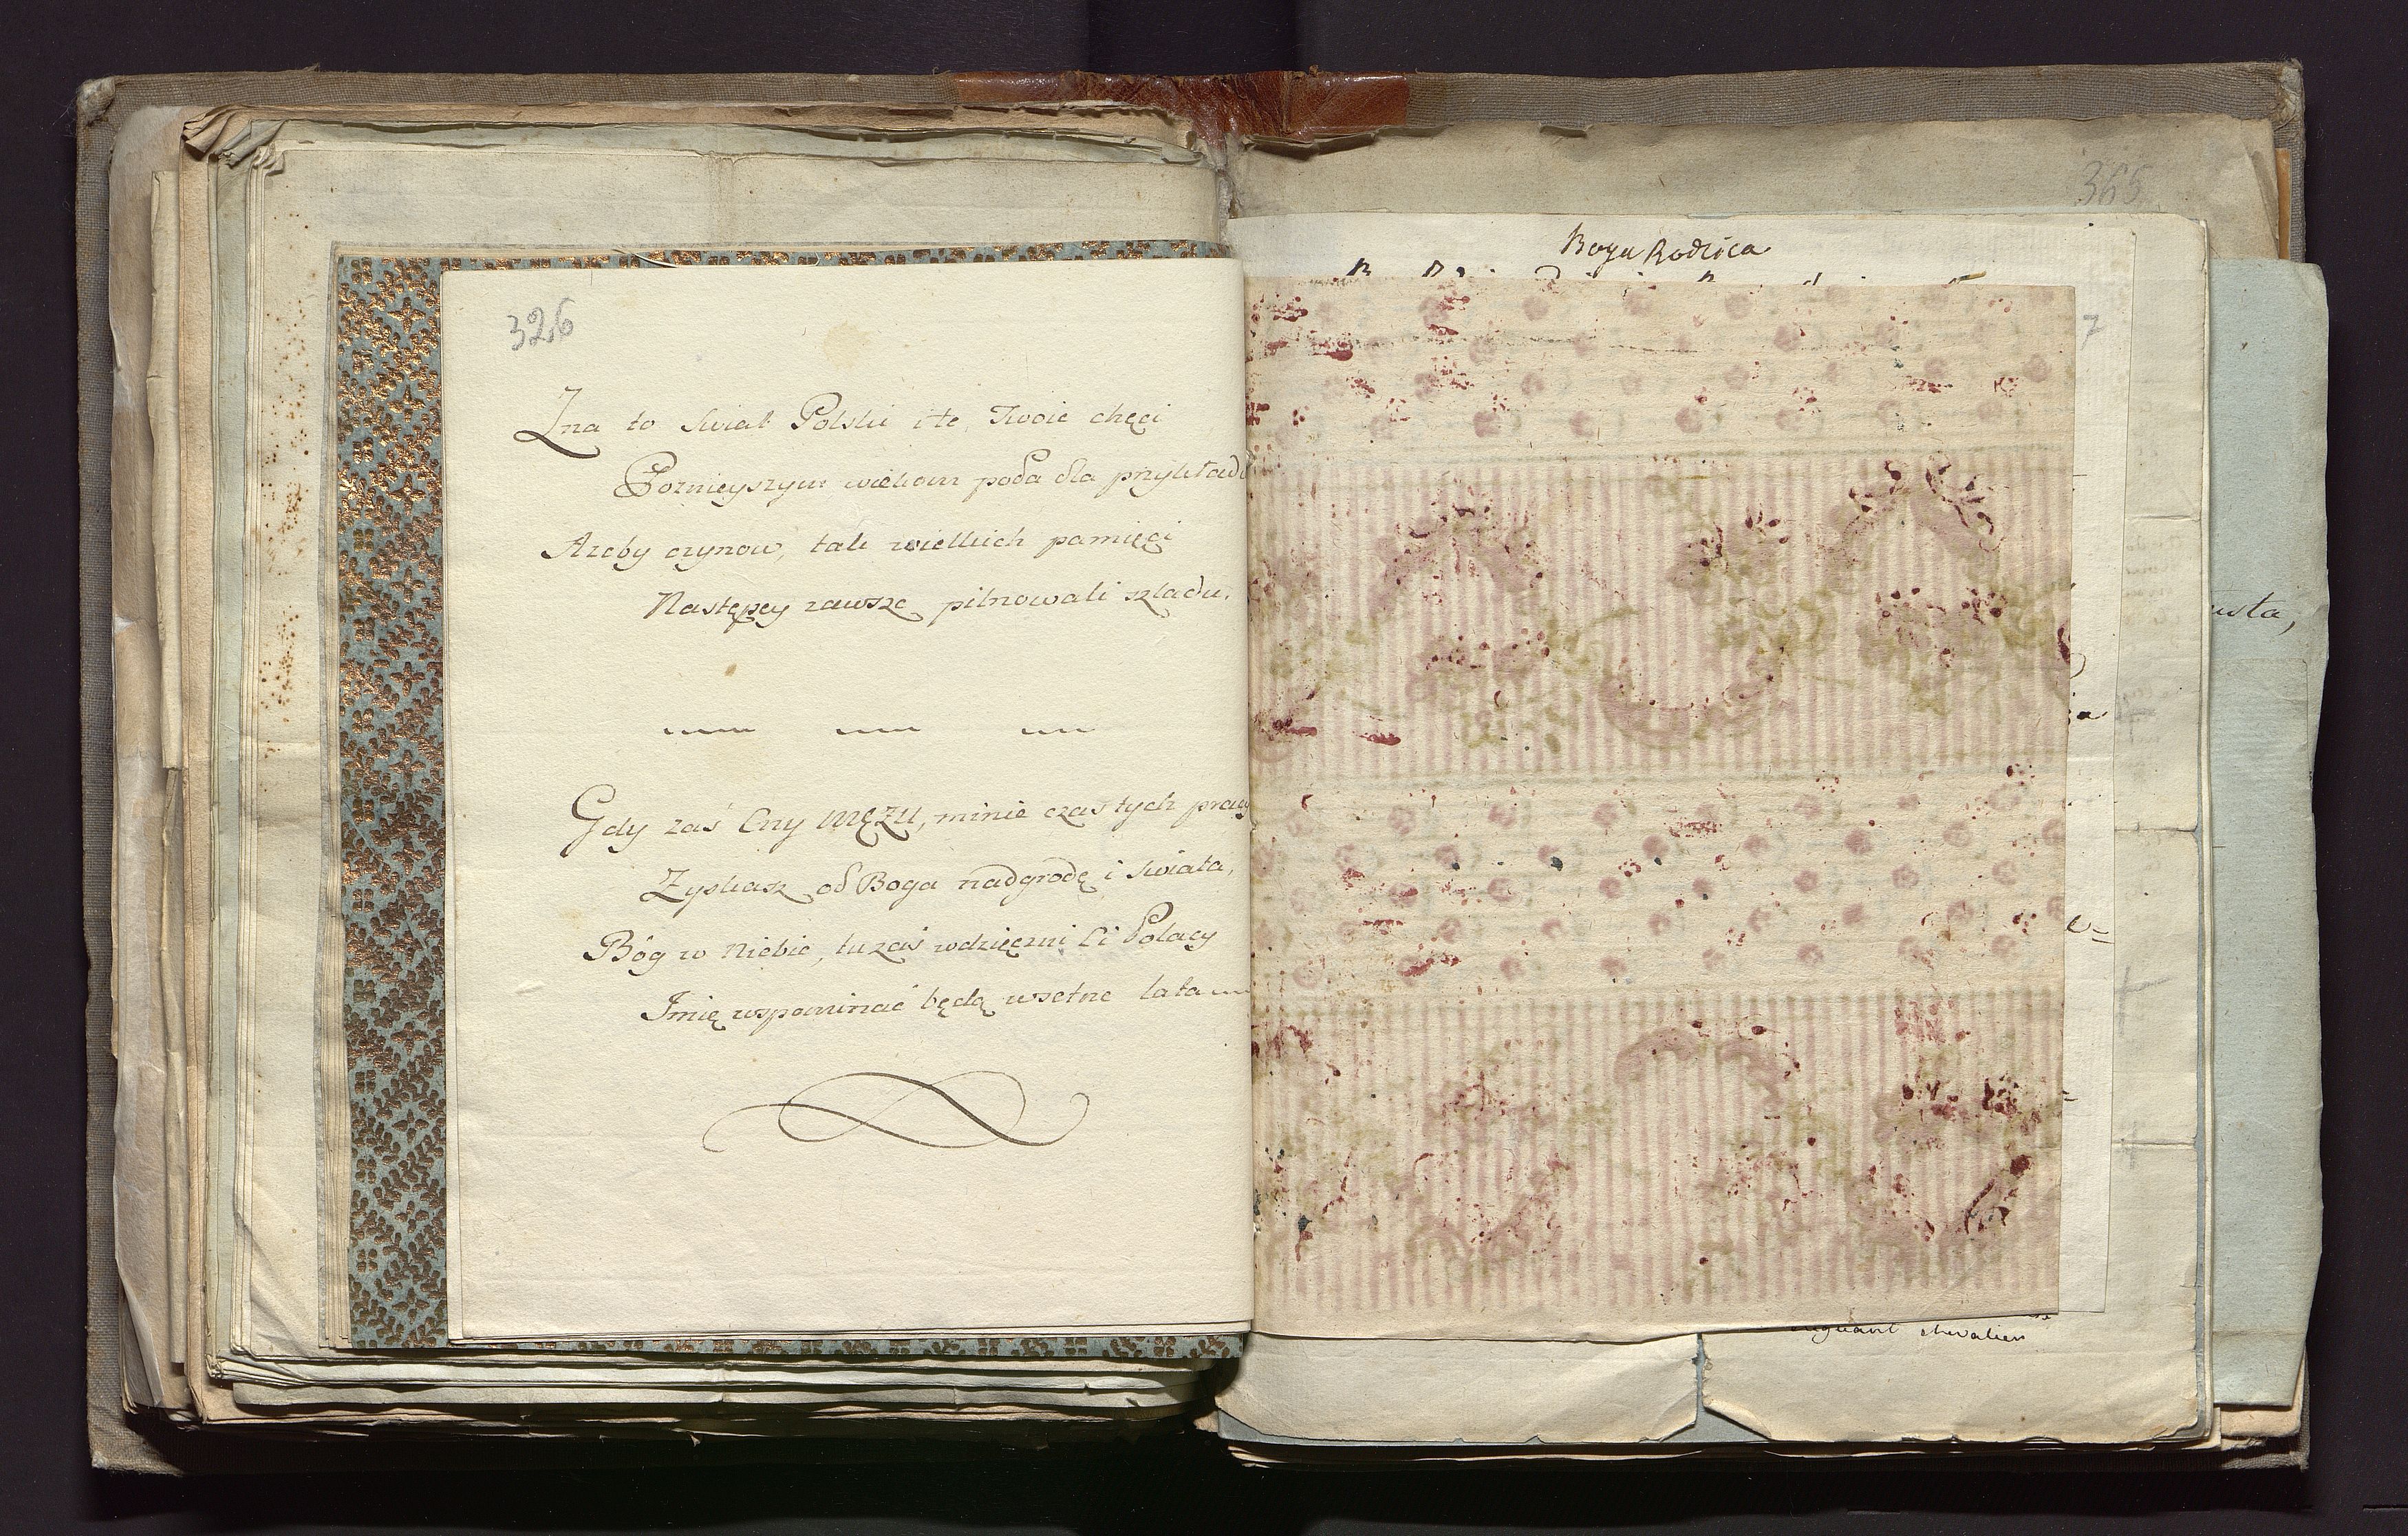 326
Zna to świat Polski i te Twoie chęci
Poznieyszym wiekom poda dla przykładu
Azeby czynow, tak wielkich pamięci
Następcy zawsze pilnowali szladu.
Gdy zaś Cny MĘZU, minie czas tych pracy
Zyskasz od Boga nadgrodę i świata,
Bóg w Niebie, tu zaś wdzięczni Ci Polacy
Imię wspominać będą w setne lata
365
Boga Rodzica
7
usta,
chevalier